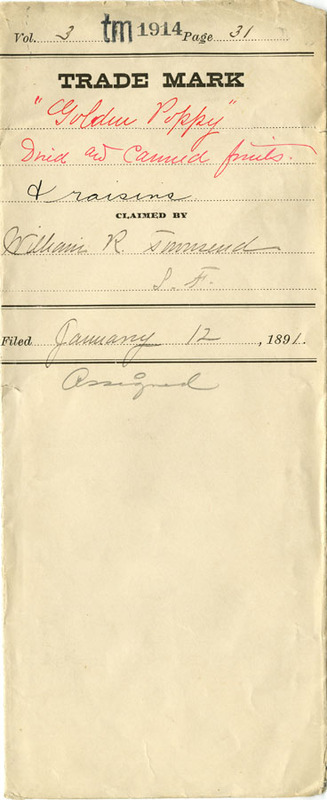 Vol. 3 tm 1914 Page 31
TRADE MARK
"Golden Poppy"
Dried and Canned fruits.
& raisins
CLAIMED BY
William R. Townsend
S. F.
Filed January 12, 1891.
Assigned